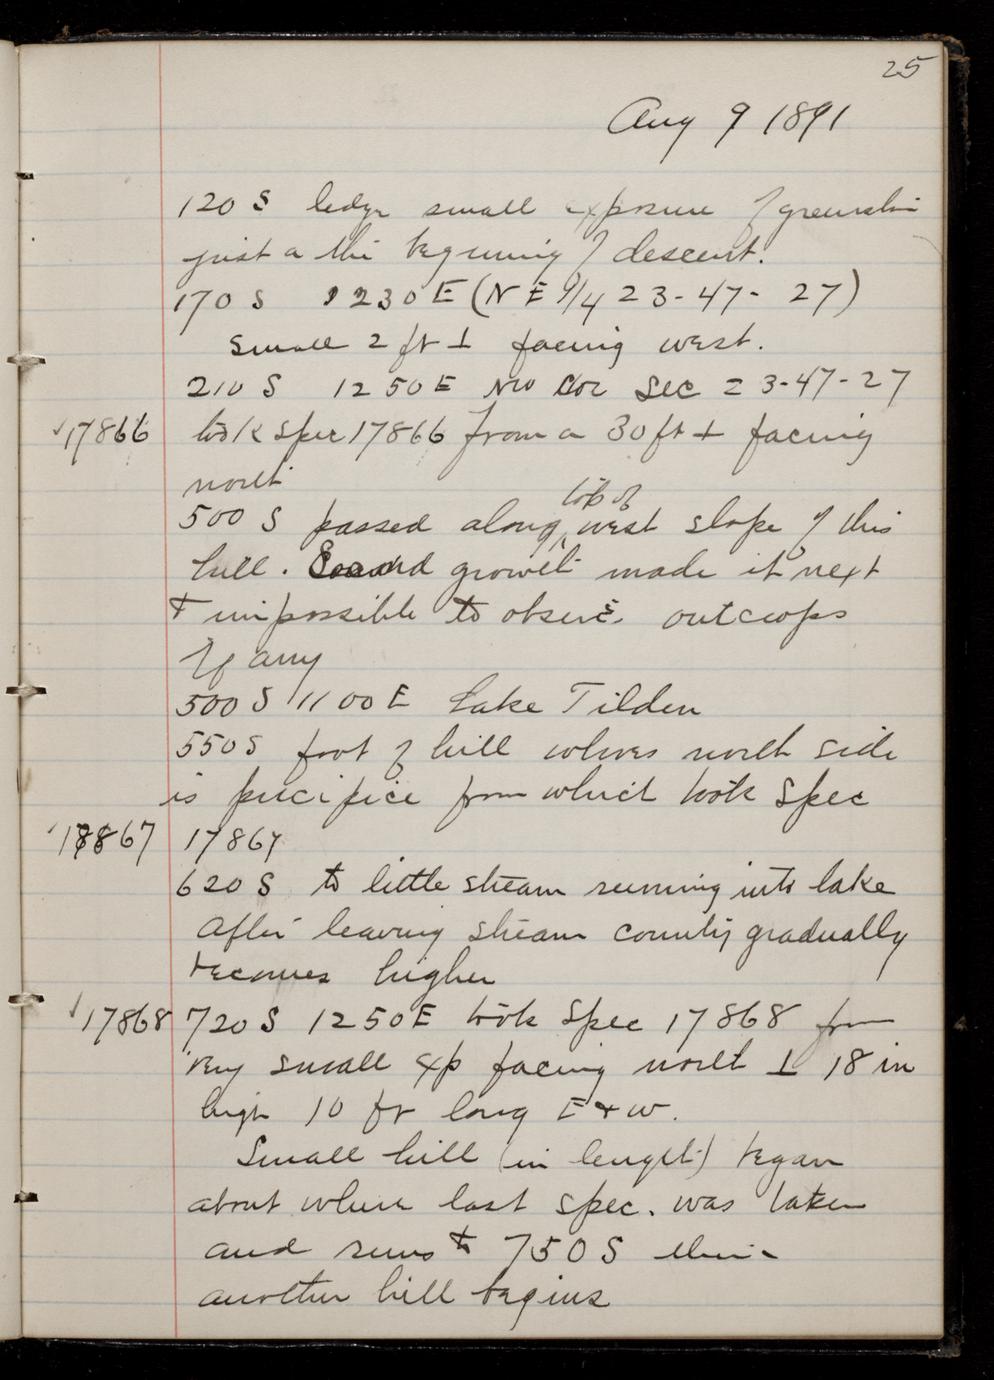 25
Aug 9 1891
120 S ledge small exposure of greenston
just a the beginning of descent.
170 S 1230 E (N E 1/4 23-47- 27)
small 2 ft ⊥ facing west.
210 S 1250 E NW Cor Sec 23-47-27
✓17866 took spec 17866 from a 30 ft ⊥ facing
north
top of
500 S passed along ^ west slope of this
hill. Second growth made it next
to impossible to observe outcrops
If any
500 S 1100 E Lake Tilden
550 S foot of hill whose north side
is precipice from which took Spec
✓17867 17867
620 S to little stream running into lake
After leaving stream country gradually
becomes higher
✓17868 720 S 1250 E took Spec 17868 from
very small exp facing north ⊥ 18 in
high 10 ft long E + W.
Small hill (in length) began
about where last spec. was taken
and runs to 750 S then
another hill begins